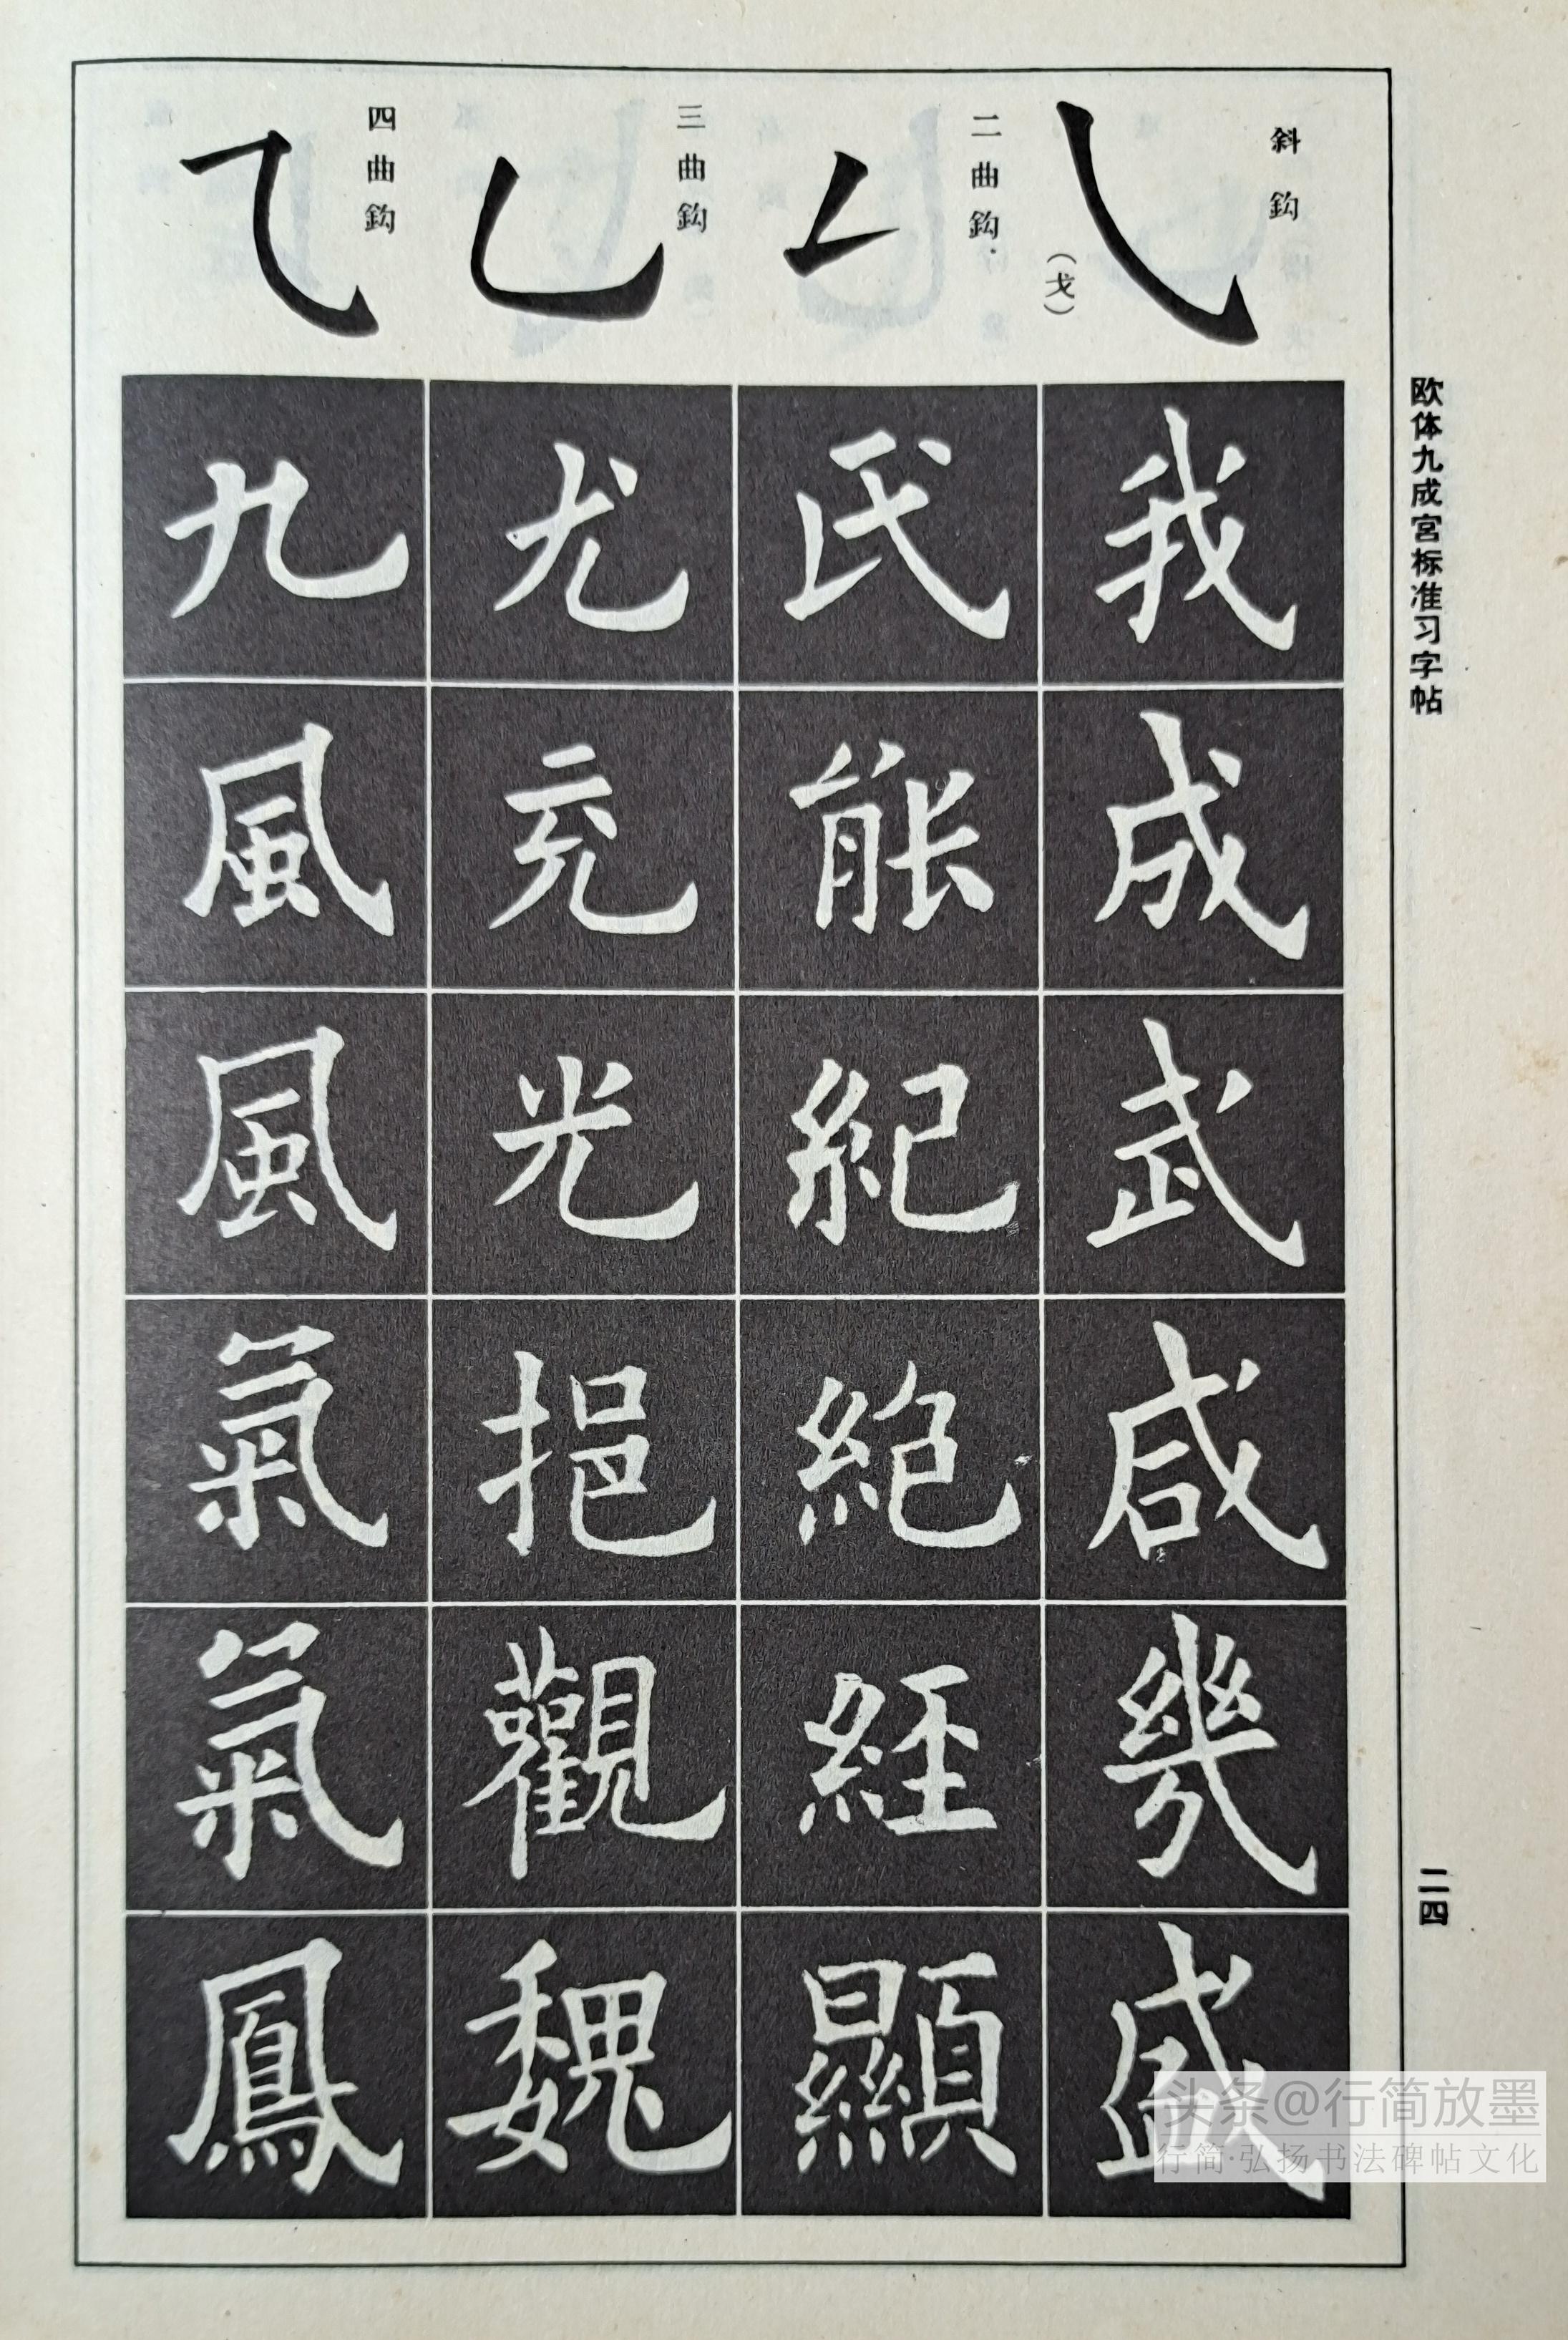 欧体九成宫标准习字帖
二四
斜鈎
(戈)
我成武咸幾盛
二曲鈎
氏能紀絕經顯
三曲鈎
尤充光挹觀魏
四曲鈎
九風風氣氣鳳
头条@行简放墨
行简·弘扬书法碑帖文化